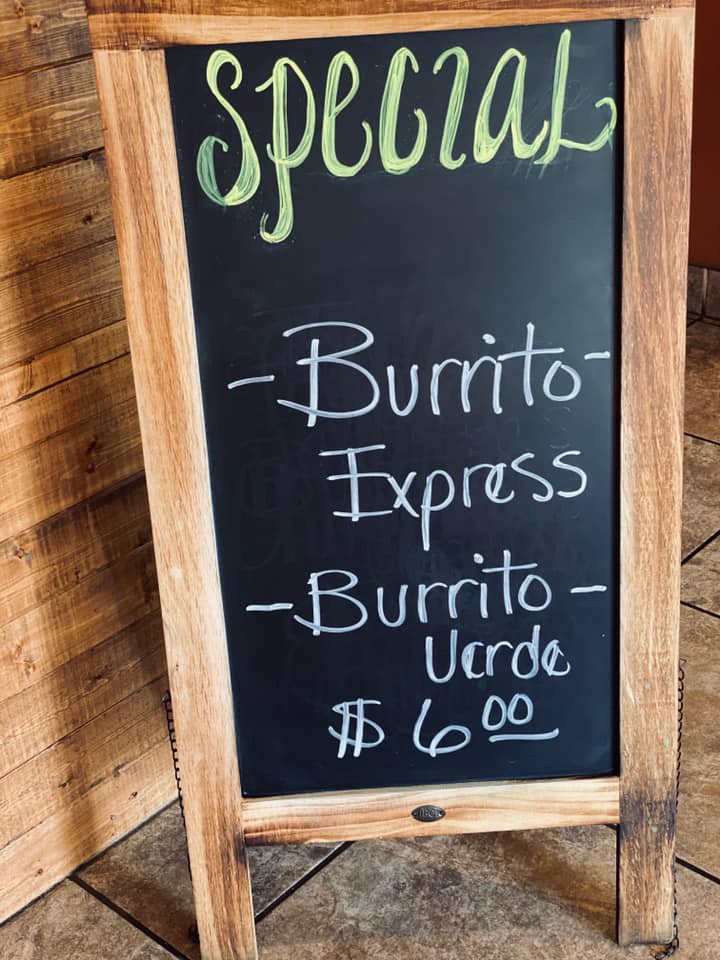 Special
- Burrito -
Express
- Burrito -
Verde
$ 6.00